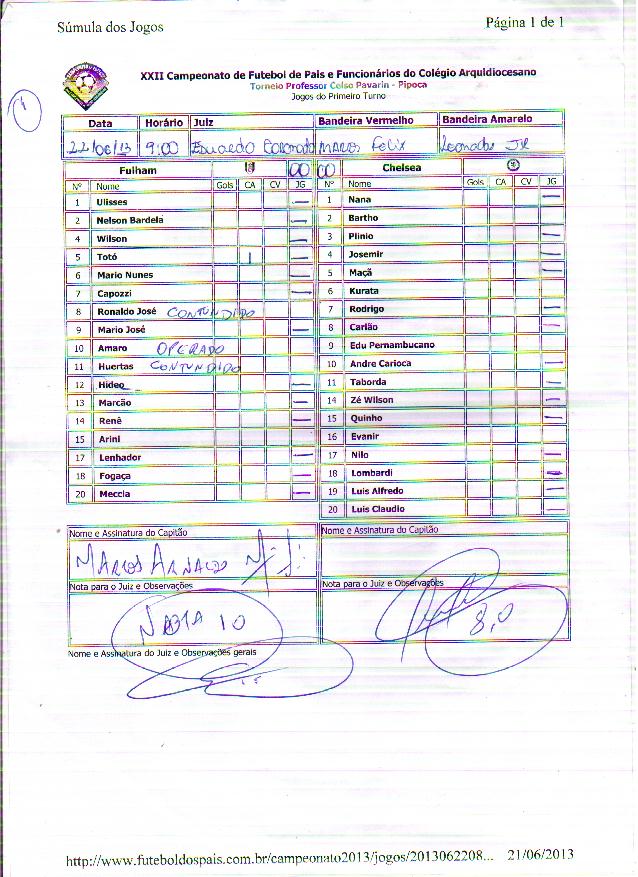 Súmula dos Jogos Página 1 de 1
XXII Campeonato de Futebol de Pais e Funcionários do Colégio Arquidiocesano
Torneio Professor Celso Pavarin - Pipoca
Jogos do Primeiro Turno
Data Horário Juiz Bandeira Vermelho Bandeira Amarelo
22/06/13 9:00 Eduardo Coronado Marcos Felix Leonardo Jr
Fulham 00 00 Chelsea
Nº Nome Gols CA CV JG Nº Nome Gols CA CV JG
1 Ulisses — 1 Nana —
2 Nelson Bardela — 2 Bartho —
4 Wilson — 3 Plinio —
5 Totó 1 — 4 Josemir —
6 Mario Nunes — 5 Maçã —
7 Capozzi — 6 Kurata
8 Ronaldo José CONTUNDIDO 7 Rodrigo —
9 Mario José — 8 Carlão —
10 Amaro OPERADO 9 Edu Pernambucano
11 Huertas CONTUNDIDO 10 Andre Carioca —
12 Hideo — 11 Taborda —
13 Marcão — 14 Zé Wilson —
14 Renê — 15 Quinho —
15 Arini 16 Evanir
17 Lenhador — 17 Nilo —
18 Fogaça — 18 Lombardi —
20 Meccia — 19 Luis Alfredo —
20 Luis Claudio —
Nome e Assinatura do Capitão Nome e Assinatura do Capitão
MARCOS ARNALDO
Nota para o Juiz e Observações Nota para o Juiz e Observações
NOTA 10 8,0
Nome e Assinatura do Juiz e Observações gerais
http://www.futeboldospais.com.br/campeonato2013/jogos/2013062208... 21/06/2013